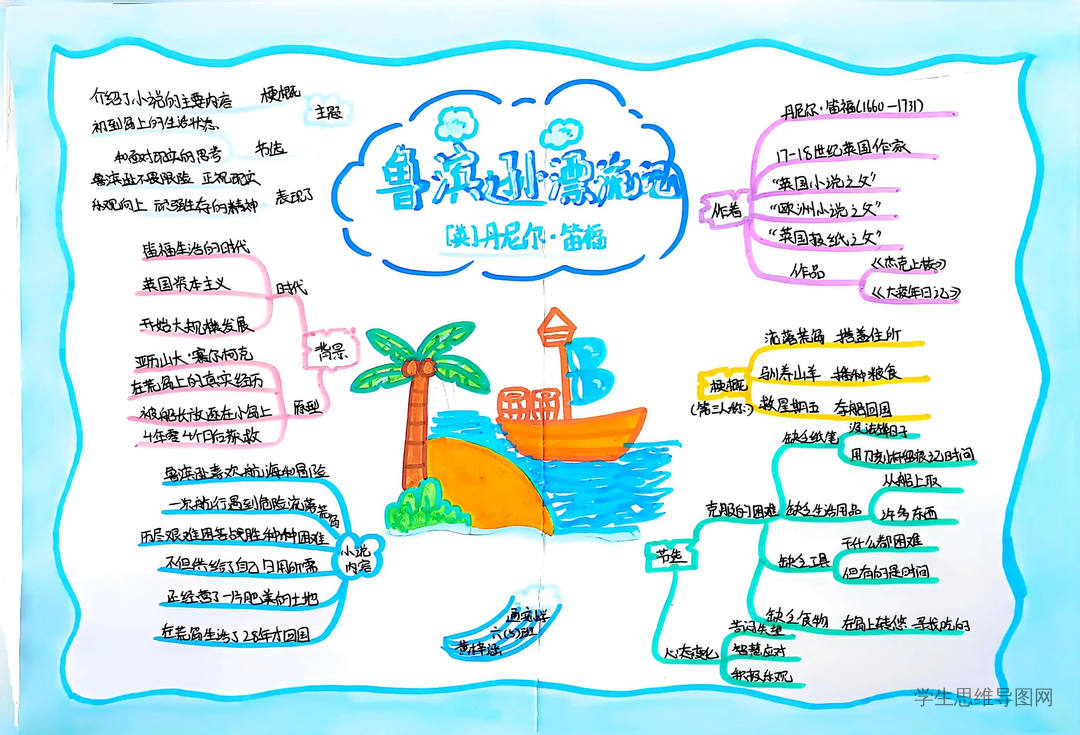 鲁滨逊漂流记
[英]丹尼尔·笛福
主题
梗概
介绍了小说的主要内容
节选
初到岛上的生活状态
和面对现实的思考
表现了
鲁滨逊不畏艰险 正视现实
乐观向上 顽强生存的精神
背景
时代
笛福生活的时代
英国资本主义
开始大规模发展
原型
亚历山大·塞尔柯克
在荒岛上的真实经历
被船长放逐在小岛上
4年零4个月后获救
小说内容
鲁滨逊喜欢航海和冒险
一次航行遇到危险流落荒岛
历尽艰难困苦战胜种种困难
不但供给了自己日用所需
还经营了一片肥美的土地
在荒岛生活了28年才回国
作者
丹尼尔·笛福(1660-1731)
17-18世纪英国作家
“英国小说之父”
“欧洲小说之父”
“英国报纸之父”
作品
《杰克上校》
《大疫年日记》
梗概
(第三人称)
流落荒岛 搭盖住所
驯养山羊 播种粮食
救星期五 夺船回国
节选
克服的困难
缺乏纸笔
没法错日子
用刀刻痕细很记时间
缺乏生活用品
从船上取
许多东西
缺乏工具
干什么都困难
但有的是时间
缺乏食物
在岛上转悠 寻找吃的
心态变化
苦闷失望
智慧应对
积极乐观
六(5)班
学生思维导图网